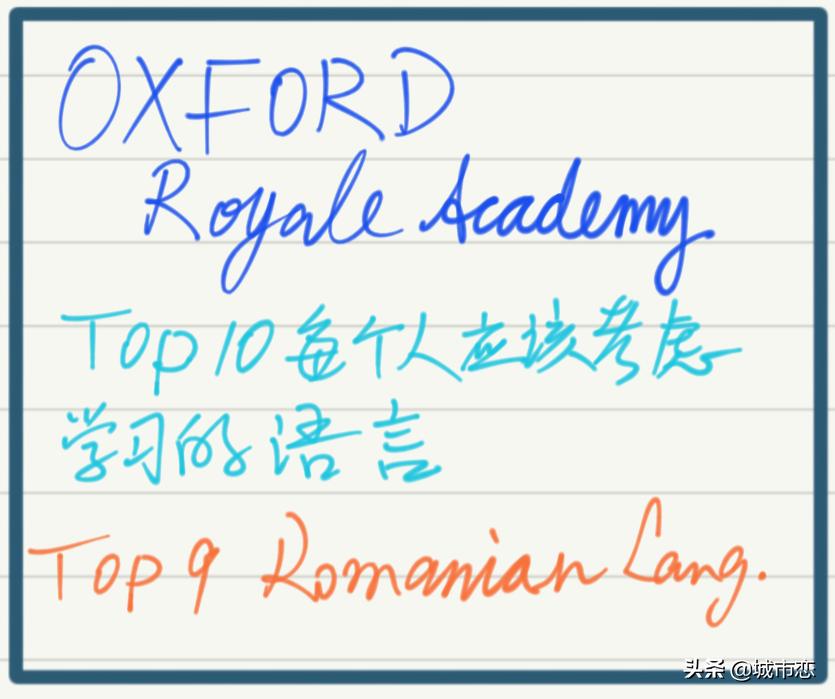 OXFORD
Royale Academy
Top 10 每个人应该考虑
学习的语言
Top 9 Romanian Lang.
头条 @城市恋